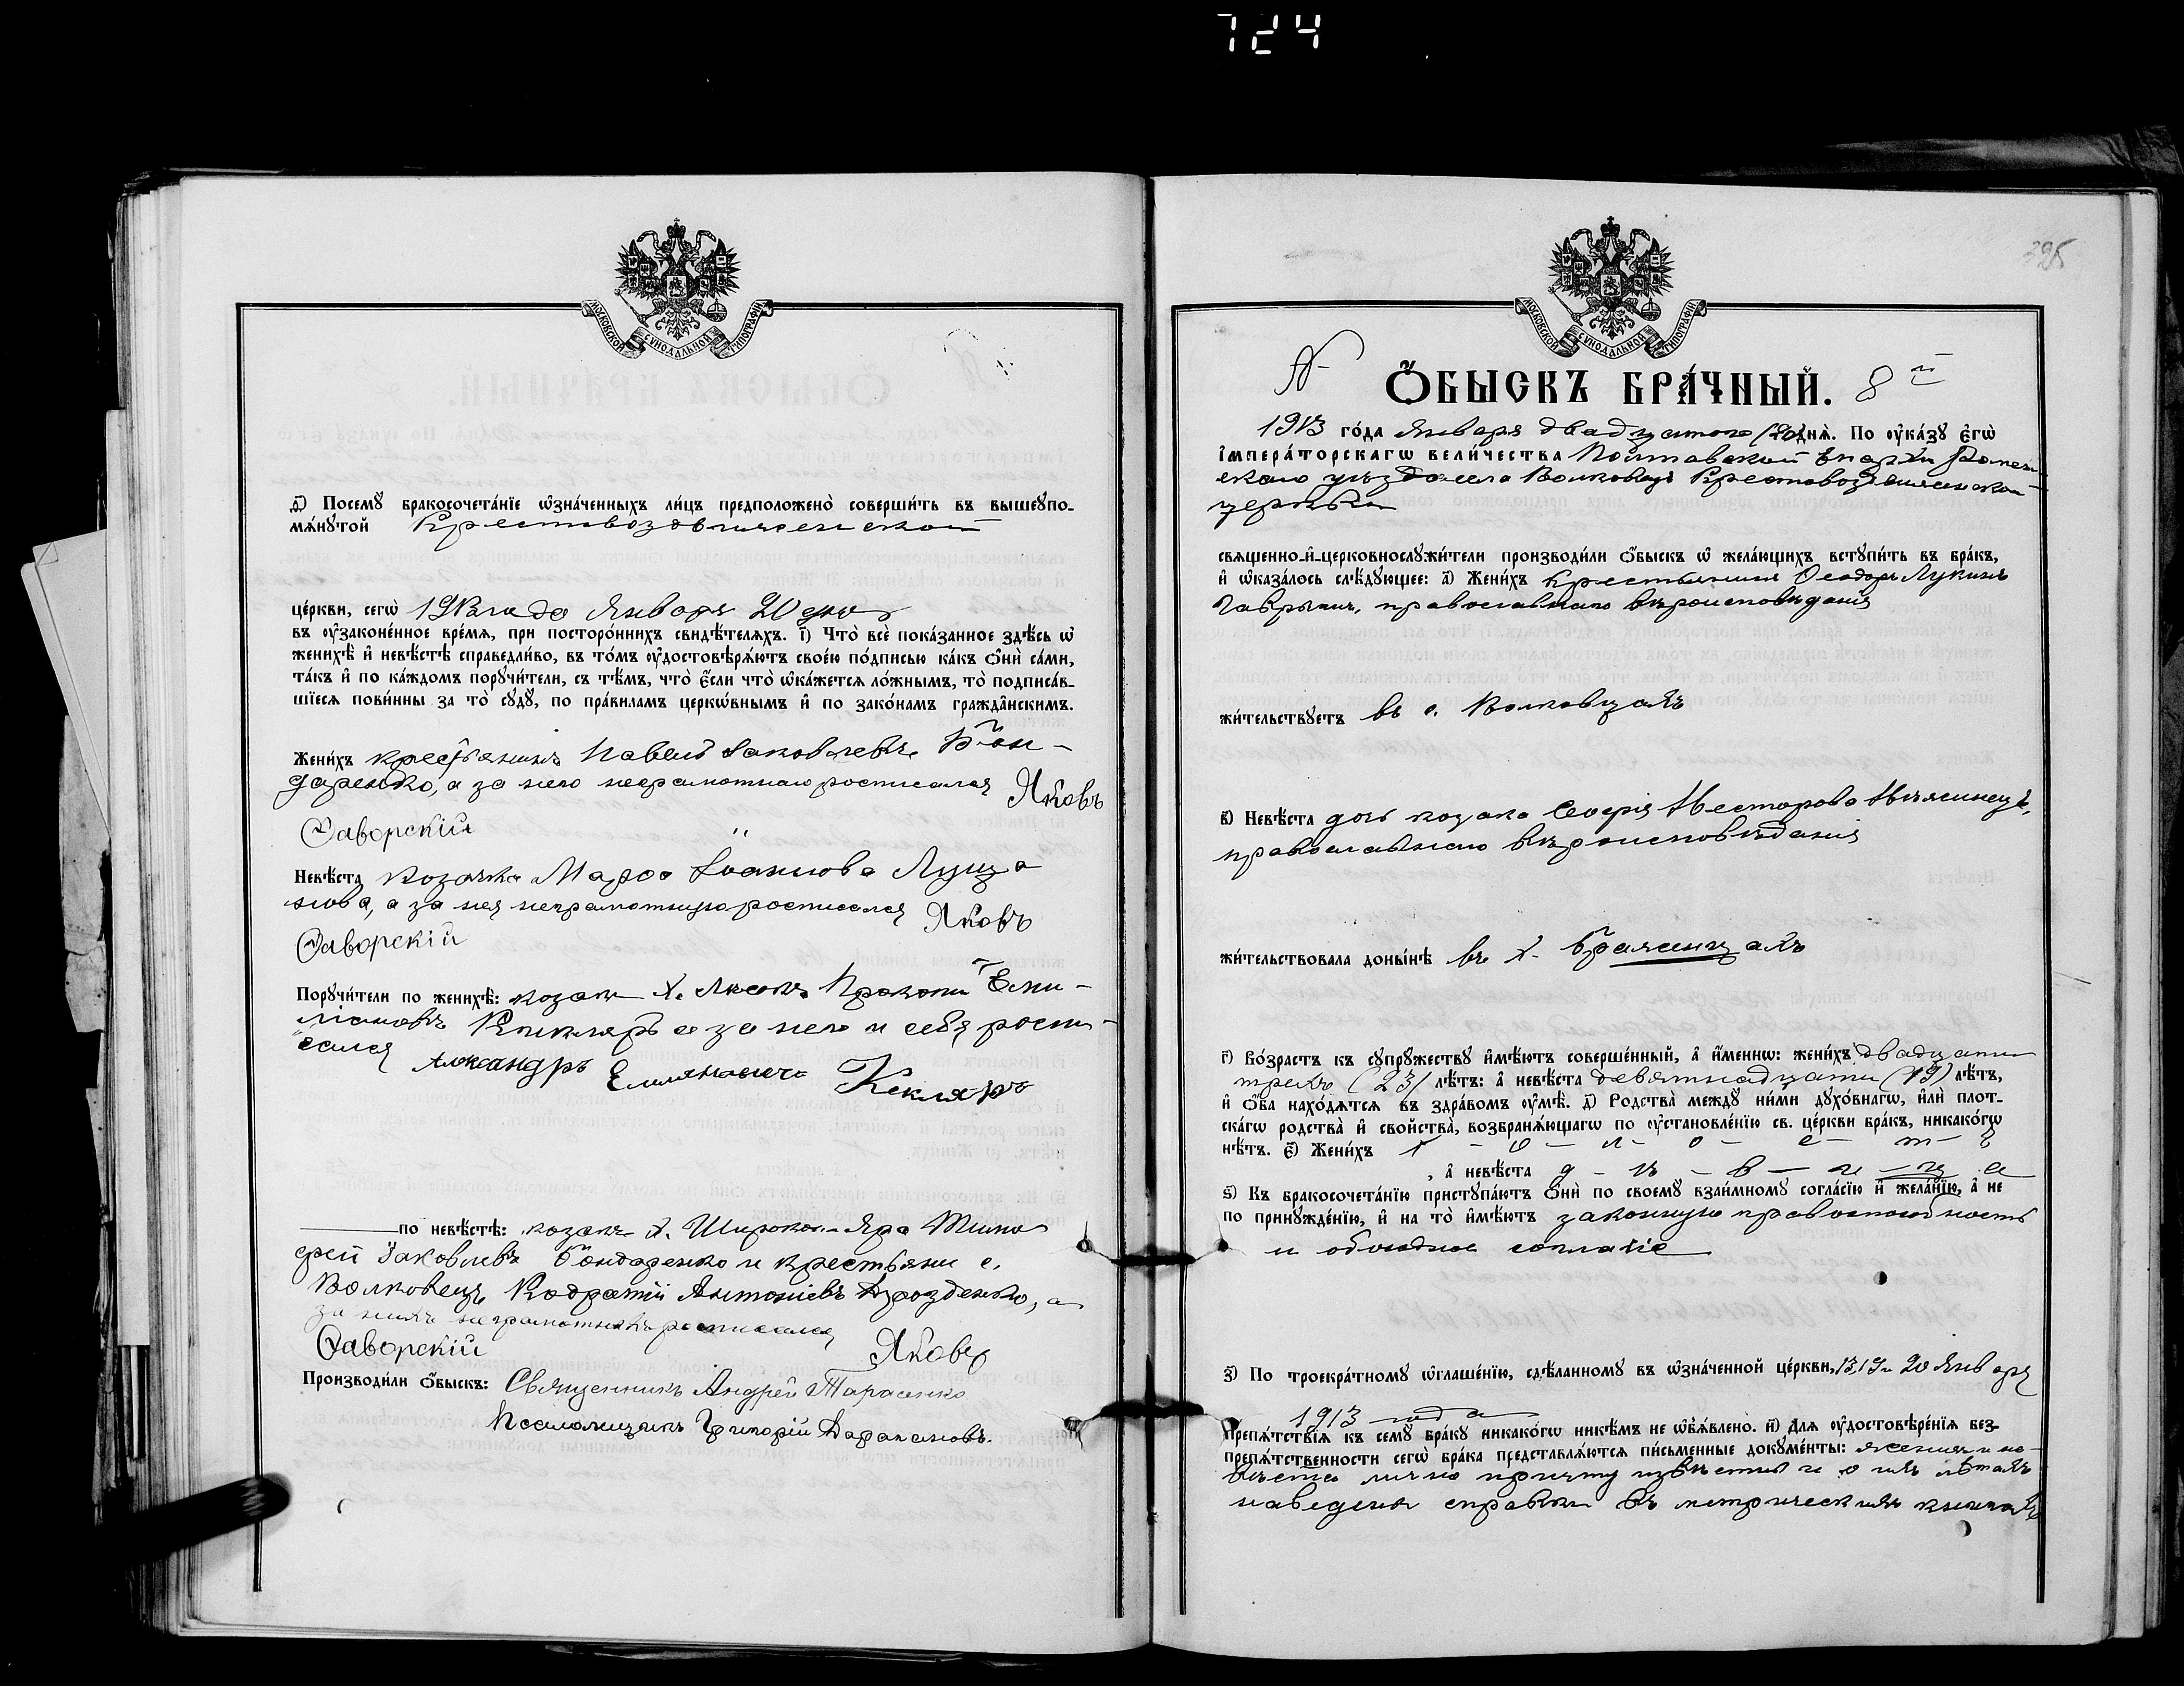 724
МОСКОВСКОЙ СѴНОДАЛЬНОЙ ТИПОГРАФІИ
д҃) Посемꙋ̀ бракосочета́нїе ѡ҆зна́ченныхъ ли́цъ предположено̀ соверши́ть въ вышеꙋпо-
мѧ́нꙋтой Крестовоздвиженской
це́ркви, сегѡ̀ 1913 года Января 20 дня
въ ᲂу҆зако́ненное вре́мѧ, при посторо́ннихъ свидѣ́телѧхъ. і҃) Что̀ всѐ пока́занное здѣ́сь ѡ҆
женихѣ̀ и҆ невѣ́стѣ справедли́во, въ то́мъ ᲂу҆достовѣрѧ́ютъ свое́ю по́дписью ка́къ ѻ҆нѝ са́ми,
та́къ и҆ по ка́ждомъ порꙋчи́тели, съ тѣ́мъ, что̀ є҆́сли что̀ ѡ҆ка́жетсѧ ло́жнымъ, то̀ подписа́в-
шїесѧ пови́нны за то̀ сꙋдꙋ̀, по пра́виламъ церкѡ́внымъ и҆ по зако́намъ гражда̑нскимъ.
Жени́хъ крестьянинъ Павелъ Іаковлевъ Бон-
даренко, а за него неграмотнаго росписался Яковъ
Фаворскій
Невѣ́ста козачка Марѳа Іоаннова Луца
нова, а за нея неграмотную росписался Яковъ
Фаворскій
Порꙋчи́тели по женихѣ̀: козакъ х. Прокопій Еми-
ліановъ Кикляръ а за него и себя роспи-
сался Александръ Емиліановичъ Кекляръ
по невѣ́стѣ: козакъ х. Широкаго Яра Тимо
ѳей Іаковлевъ Бондаренко и крестьянин с.
Волковецъ Кодратій Антоніевъ Дрозденко, а
за нихъ неграмотныхъ росписался
Фаворскій Яковъ
Производи́ли ѻ҆́быскъ: Священникъ Андрей Тарасенко
Псаломщикъ Григорій
395
МОСКОВСКОЙ СѴНОДАЛЬНОЙ ТИПОГРАФІИ
№ Ѻ҆́БЫСКЪ БРА́ЧНЫЙ. 8й
1913 го́да Января двадцатого (20) днѧ̀. По ᲂу҆ка́зꙋ є҆гѡ̀
і҆мпера́торскагѡ вели́чества Полтавской Епархіи Ромен-
скаго уѣзда села Волковецъ Крестовоздвиженской
церкви
свѧще́нно-и҆-церковнослꙋжи́тели производи́ли ѻ҆́быскъ ѡ҆ жела́ющихъ встꙋпи́ть въ бра́къ,
и҆ ѡ҆каза́лось слѣ́дꙋющее: а҃) Жени́хъ крестьянинъ Ѳеодоръ Лукинъ
православнаго вѣроисповѣданія
жи́тельствꙋетъ въ с. Волковцахъ
в҃) Невѣ́ста дочь козака Несторова
православнаго вѣроисповѣданія
жи́тельствовала доны́нѣ въ х. Бражинцахъ
г҃) Во́зрастъ къ сꙋпрꙋ́жествꙋ и҆мѣ́ютъ соверше́нный, а҆ и҆́меннѡ: жени́хъ двадцати
трехъ (23) лѣ́тъ: а҆ невѣ́ста девятнадцати (19) лѣ́тъ,
и҆ ѻ҆́ба нахо́дѧтсѧ въ здра́вомъ ᲂу҆мѣ̀. д҃) Родства̀ междꙋ̀ ни́ми дꙋхо́внагѡ, и҆лѝ пло́т-
скагѡ родства̀ и҆ свойства̀, возбранѧ́ющагѡ по ᲂу҆становле́нїю св. це́ркви бра́къ, никако́гѡ
нѣ́тъ. є҃) Жени́хъ х - о - л - о - с - т - ъ
, а҆ невѣ́ста д - ѣ - в - и - ц - а
ѕ҃) Къ бракосочета́нїю пристꙋпа́ютъ ѻ҆нѝ по своемꙋ̀ взаи́мномꙋ согла́сїю и҆ жела́нїю, а҆ не
по принꙋжде́нїю, и҆ на то̀ и҆мѣ́ютъ законную правоспособность
и обоюдное согласіе
з҃) По троекра́тномꙋ ѡ҆глаше́нїю, сдѣ́ланномꙋ въ ѡ҆зна́ченной це́ркви, 13, 19 и 20 Января
1913 года
Препѧ́тствїѧ къ семꙋ̀ бра́кꙋ никако́гѡ никѣ́мъ не ѡ҆б̾ѧ́влено. и҃) Длѧ ᲂу҆достовѣре́нїѧ без-
препѧ́тственности сегѡ̀ бра́ка представлѧ́ютсѧ пи́сьменные докꙋме́нты: женихъ и не-
вѣста лично причту извѣстны и о ихъ лѣтахъ
наведены справки въ метрическихъ книгахъ